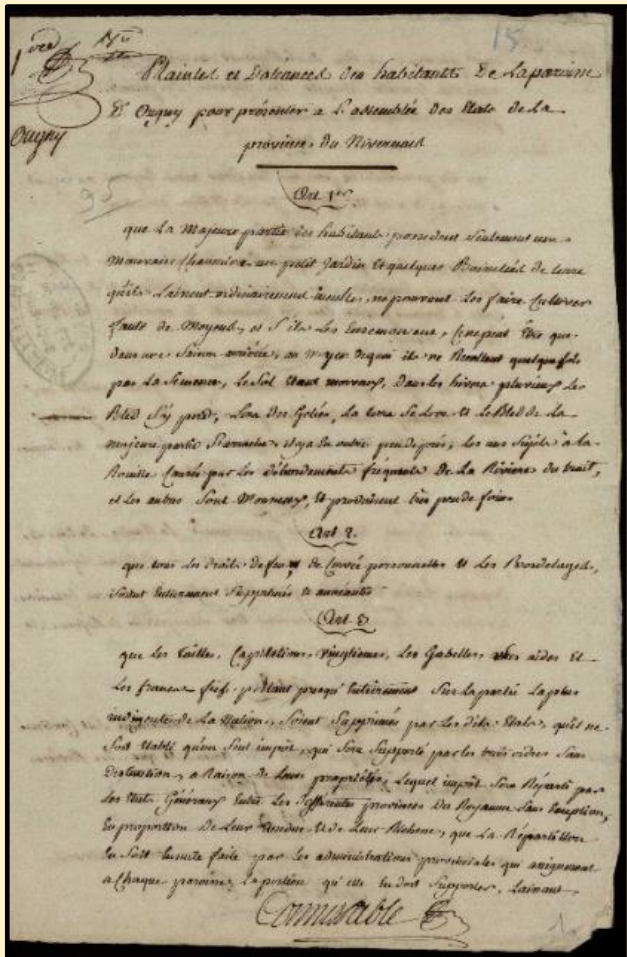 1ere
15
Plaintes et Doleances des habitants De Laparoisse
D'Ougny pour présenter a L'assemblée Des Etats de La
Ougny
province du Nivernais
95
Art 1er
que La Majeure partie Des habitants possedent Seulement une
Mauvaise Chaumiere un petit Jardin Et quelques Boisselées de terre
qu'ils Laissent ordinairement incultes, ne pouvant Les faire Cultiver
faute de Moyens, et S'ils Les Ensemencent, Ce n'peut Etre que
dans une Saison, au moyen dequoi ils ne Recoltent quelque fois
pas La Semence, Le Sol Etant mauvais, Dans les hivers pluvieux Les
Bled S'y perd, Lors des Gelées, La terre Se Leve Et Le Bled De La
majeure partie S'arrache, il y a En outre peu de prés, les uns Sujets à la
Rouille Causée par Les débordements fréquents De La Riviere du trait,
et Les autres Sont Mousseux, Et produisent très peu de foin
Art 2.
que tous Les Droits de feu, de Corvée personnelle Et Les Bordelages,
Soient Entierement Supprimés Et annéantis
Art 3
que Les tailles, Capitations, vingtiemes, Les Gabelles, aides Et
Les francs fief portant presqu'Entièrement Sur La partie La plus
indigente De La Nation, Soient Supprimés par Les dits Etats, qu'il ne
Soit Etabli qu'un Seul impôt, qui Sera Supporté par les trois ordres Sans
Distinction, a Raison De Leurs propriétés, Lequel impôt Sera Réparti par
Les Etats Généraux Entre Les differentes provinces Du Royaume Sans Exception,
En proportion De Leur Etendue Et de Leur Richesse, que La Répartition
En Soit Ensuite faite par Les administrations provinciales qui assigneront
a Chaque paroisse La portion qu'elle En doit Supporter, Laissant